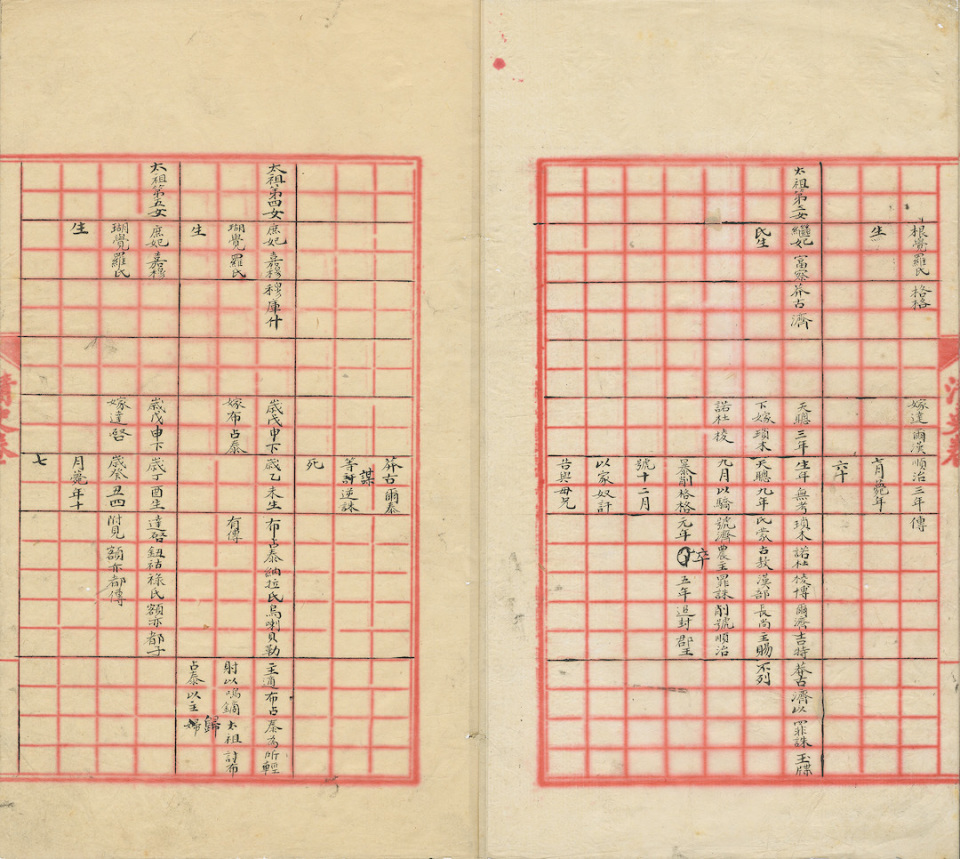 根覺羅氏 格格 嫁達爾漢 順治三年 傳
生 七月薨年
六十
太祖第三女 繼妃富察 莽古濟 天聰三年 生年無考 瑣木諾杜棱博爾濟吉特 莽古濟以罪誅玉牒
氏生 下嫁瑣木 天聰九年 氏蒙古敖漢部長尚主賜 不列
諾杜棱 九月以驕 號濟農主罪誅削號順治
暴削格格 元年卒五年追封郡王
號十二月
以家奴訐
告與母兄
莽古爾泰
等謀逆誅
死
太祖第四女 庶妃嘉穆 穆庫什 歲戊申下 歲乙未生 布占泰納拉氏烏喇貝勒 主適布占泰為所輕
瑚覺羅氏 嫁布占泰 有傳 射以鳴鏑太祖討布
生 占泰以主歸
太祖第五女 庶妃嘉穆 歲戊申下 歲丁酉生 達啓鈕祜祿氏額亦都子
瑚覺羅氏 嫁達啓 歲癸丑四 附見額亦都傳
生 月薨年十
七